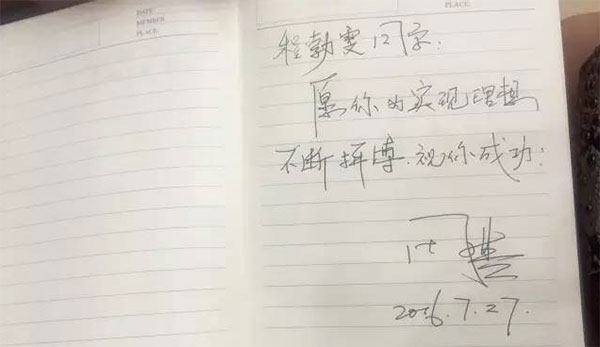 DATE
MEMBER
PLACE
PLACE
程勃雯同学:
愿你为实现理想
不断拼博.祝你成功:
2016.7.27.